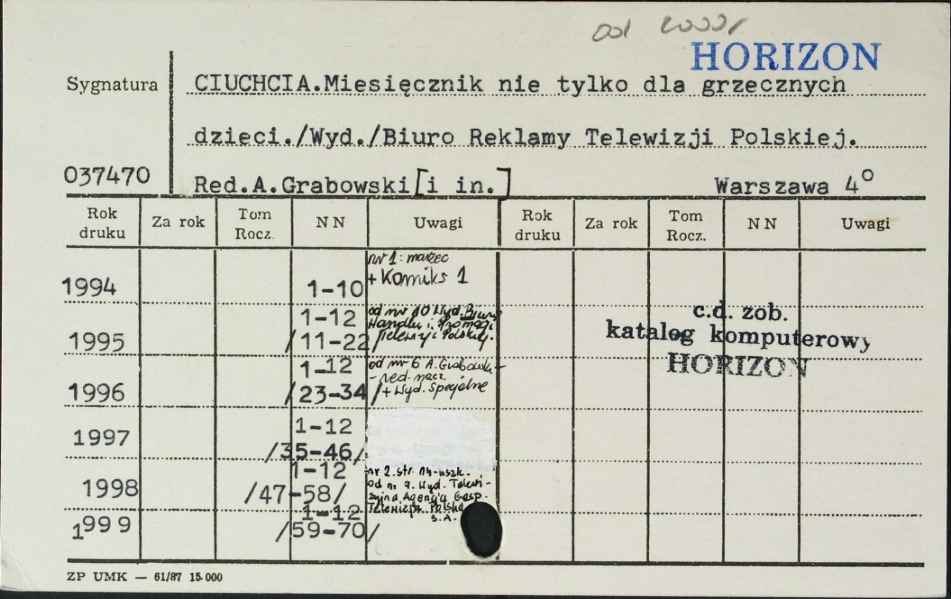 od 2000r
HORIZON
Sygnatura
CIUCHCIA.Miesięcznik nie tylko dla grzecznych
dzieci./Wyd./Biuro Reklamy Telewizji Polskiej.
037470
Red.A.Grabowski[i in.] Warszawa 4°
Rok druku Za rok Tom Rocz. NN Uwagi Rok druku Za rok Tom Rocz. NN Uwagi
nr 1: marzec
1994 1-10 + Komiks 1
1995 1-12 od nr 10 Wyd. Biuro
Handlu i Promocji
/11-22/ Telewizji Polskiej.
1996 1-12 od nr 6 A. Grabowski-
- red. nacz.
/23-34/ + Wyd. Specjalne
1997 1-12
/35-46/
1998 1-12 nr 2. str. 14-uszk.
/47-58/ od n. 9. Wyd. Telewi-
zyjna Agencja Gosp.
1999 1-12 Telewizja Polska
S.A.
/59-70/
c.d. zob.
katalog komputerowy
HORIZON
ZP UMK — 61/87 15.000